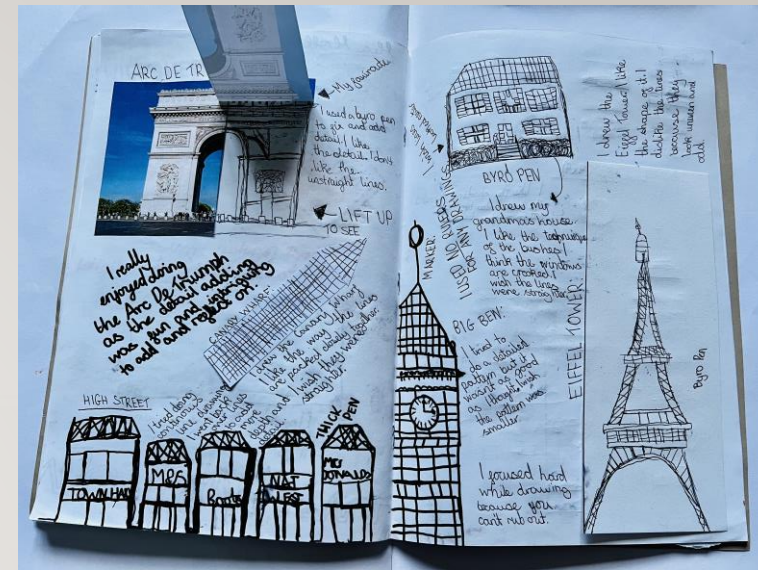 ARC DE TR
My favourate
I used a byro pen
to fix and add
detail. I like
the detail. I don't
like the
unstraight lines.
LIFT UP
TO SEE
I really
enjoyed doing
the Arc De Triumph
as the detail adding
was fun and intriguing
to add and reflect on.
CANARY WHARF:
I drew the Canary Wharf
I like the way the lines
are packed closely together
I wish they were
straighter.
HIGH STREET
I tried doing
continuous
line drawing
I went back
over lines
to add
more
depth and
detail
THICK
PEN
TOWN HALL
M&S
Boots
NAT
WEST
MC
DONALDS
BYRO PEN
I drew my
grandmas house.
I like the technique
of the bushes I
think the windows
are crooked I
wish the lines
were straighter.
MARKER:
I USED NO RULERS
FOR ANY DRAWINGS
BIG BEN:
I tried to
do a detailed
pattern but it
wasn't as good
as I thought I wish
the pattern was
smaller.
I focused hard
while drawing
because you
can't rub out.
I drew the
Eiffel Tower I like
the shape of it I
dislike the lines
because they
look uneven and
odd.
EIFFEL TOWER:
Byro Pen